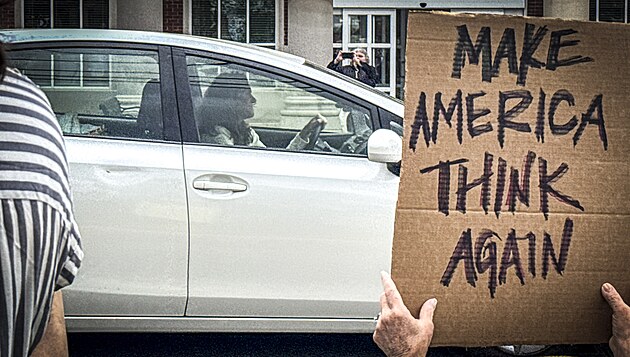 MAKE
AMERICA
THINK
AGAIN